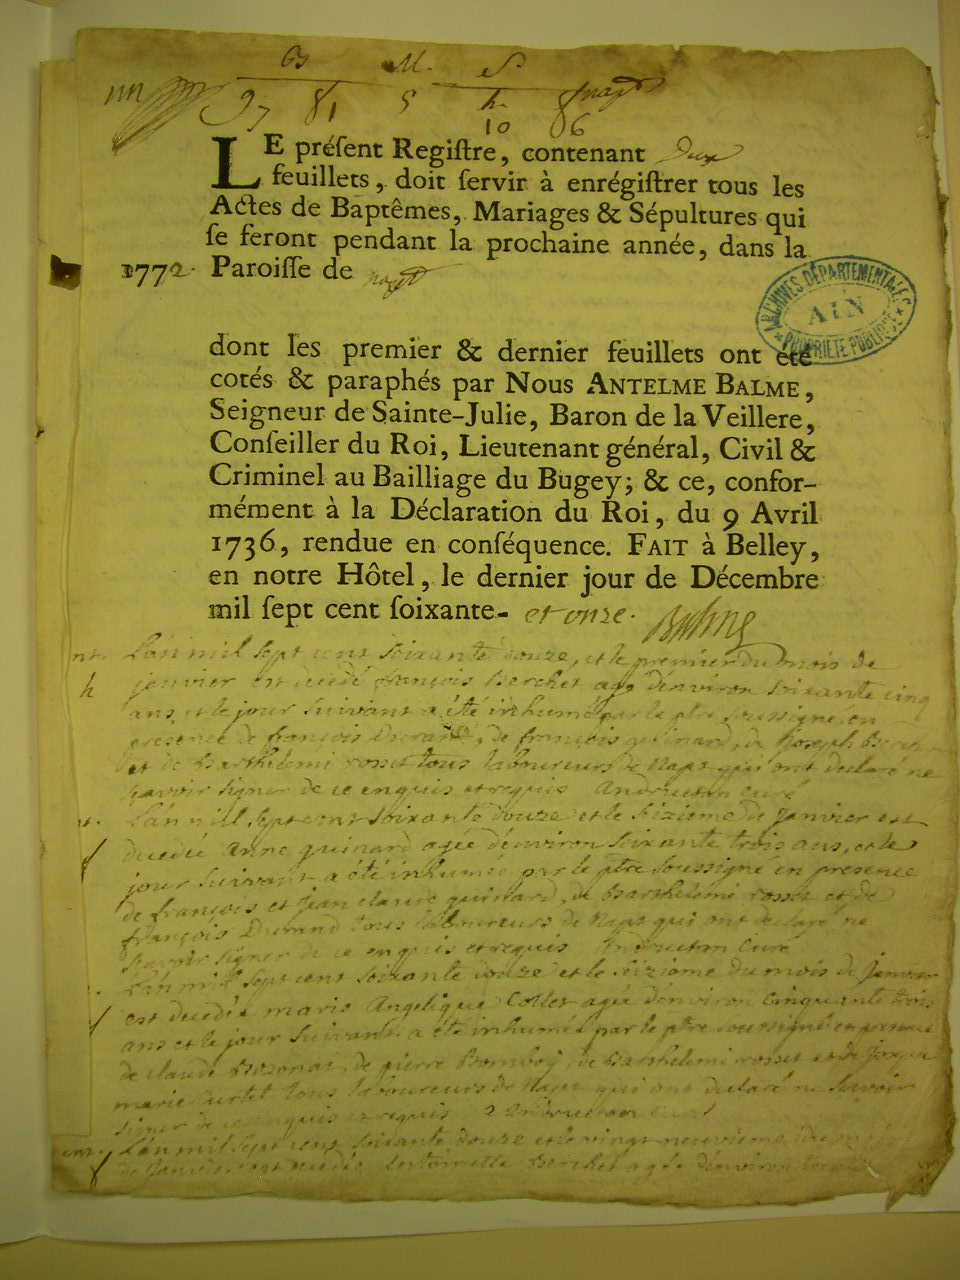 B M. S.
97 81 5 h 86
10
LE préſent Regiſtre, contenant Deux
feuillets, doit ſervir à enrégiſtrer tous les
Actes de Baptêmes, Mariages & Sépultures qui
ſe feront pendant la prochaine année, dans la
1772. Paroiſſe de
ARCHIVES DÉPARTEMENTALES
AIN
PROPRIÉTÉ PUBLIQUE
dont les premier & dernier feuillets ont été
cotés & paraphés par Nous ANTELME BALME,
Seigneur de Sainte-Julie, Baron de la Veillere,
Conſeiller du Roi, Lieutenant général, Civil &
Criminel au Bailliage du Bugey; & ce, confor-
mément à la Déclaration du Roi, du 9 Avril
1736, rendue en conſéquence. FAIT à Belley,
en notre Hôtel, le dernier jour de Décembre
mil ſept cent ſoixante- et onze. Balme
L'an mil sept cent soixante douze, et le premier du mois de
janvier est decedé françois Berchet agé d'environ soixante cinq
ans, et le jour suivant a été inhumé par le ptre soussigné en
presence de françois Durand, de françois quinard, de Joseph
et de Barthelemi rosset tous laboureurs de Napt qui ont declaré ne
sçavoir signer de ce enquis et requis curé
L'an mil sept cent soixante douze et le seizieme de Janvier est
decedée anne quinard agée d'environ soixante trois ans, et le
jour suivant a été inhumée par le ptre soussigné en presence
de françois et Jean claude quinard, de Barthelemi rosset et de
françois Durand tous laboureurs de Napt qui ont declaré ne
sçavoir signer de ce enquis et requis curé
L'an mil sept cent soixante douze et le seizieme du mois de Janvier
est decedée marie Angelique Collet agée d'environ cinquante trois
ans et le jour suivant a été inhumée par le ptre soussigné en presence
de claude de pierre de Barthelemi rosset et de
marie tous laboureurs de Napt qui ont declaré ne sçavoir
signer de ce enquis et requis curé
L'an mil sept cent soixante douze et le vingt neuvieme du mois
de Janvier est decedée Berchet agée d'environ